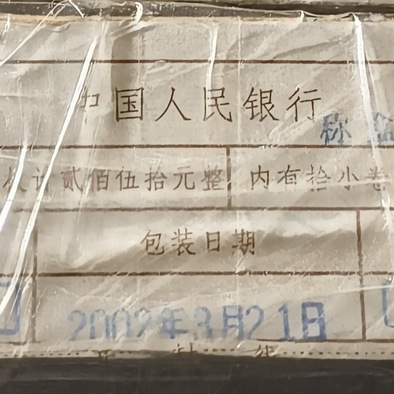 中国人民银行
称
计贰佰伍拾元整 内有拾小卷
包装日期
2002年3月21日